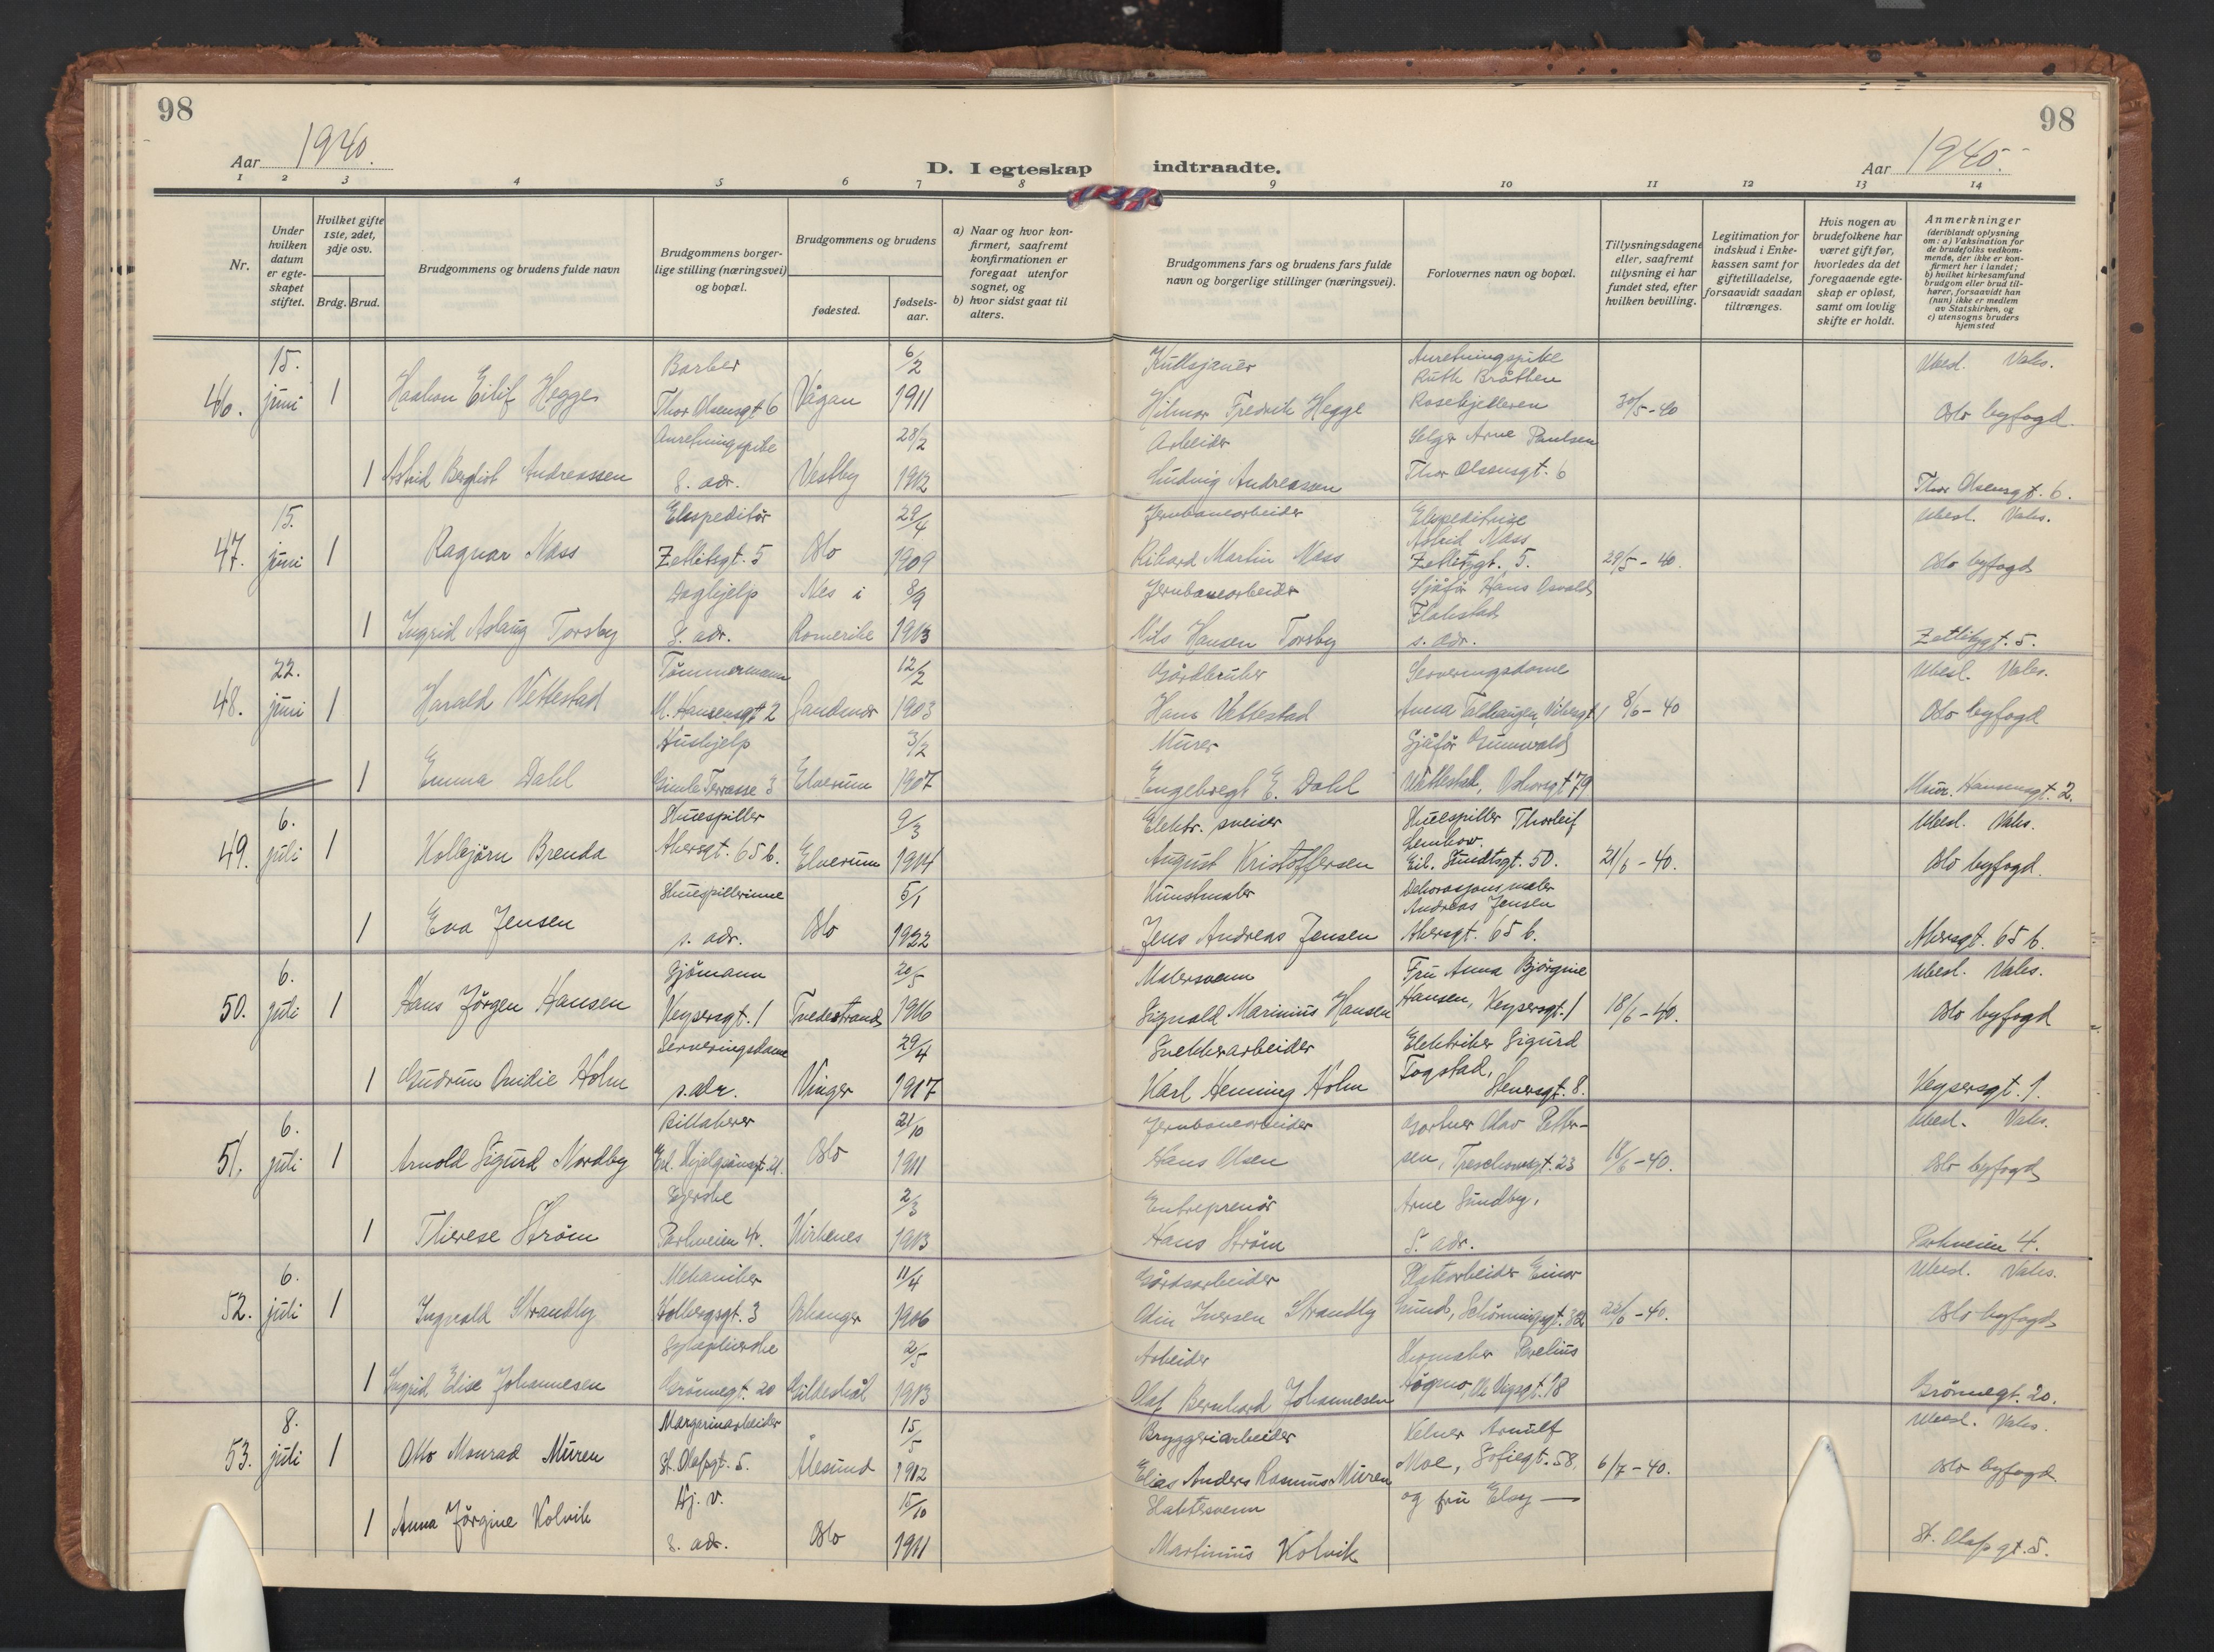 98
98
Aar 1940.
D. I egteskap indtraadte.
Aar 1940.
1 2 3 4 5 6 7 8 9 10 11 12 13 14
Nr.
Under hvilken datum er egteskapet stiftet.
Hvilket gifte 1ste, 2det, 3dje osv.
Brdg. Brud.
Brudgommens og brudens fulde navn
Brudgommens borgerlige stilling (næringsvei) og bopæl.
Brudgommens og brudens
fødested.
fødselsaar.
a) Naar og hvor konfirmert, saafremt konfirmationen er foregaat utenfor sognet, og
b) hvor sidst gaat til alters.
Brudgommens fars og brudens fars fulde navn og borgerlige stillinger (næringsvei).
Forlovernes navn og bopæl.
Tillysningsdagene eller, saafremt tillysning ei har fundet sted, efter hvilken bevilling.
Legitimation for indskud i Enkekassen samt for giftetilladelse, forsaavidt saadan tiltrænges.
Hvis nogen av brudefolkene har været gift før, hvorledes da det foregaaende egteskap er opløst, samt om lovlig skifte er holdt.
Anmerkninger
(deriblandt oplysning om: a) Vaksination for de brudefolks vedkommende, der ikke er konfirmert her i landet;
b) hvilket kirkesamfund brudgom eller brud tilhører, forsaavidt han (hun) ikke er medlem av Statskirken, og
c) utensogns bruders hjemsted
15. Barber 6/2 Kullsjauer Anretningspike
Ruth Bråthen
46. juni 1 Haakon Eilif Hegge Thor Olsensgt 6 Vågan 1911 Hilmar Fredrik Hegge 30/5-40 Oslo byfogd.
Anretningspike 28/2 Arbeider Selger Arne Paulsen
1 Astrid Bergliot Andreassen s. adr. Vestby 1912 Ludvig Andreassen Thor Olsensgt. 6 Thor Olsensgt. 6.
15. Ekspeditør 29/4 Jernbanearbeider Ekspeditrise
Astrid Næss
47. juni 1 Ragnar Næss Zetlitzgt. 5 Oslo 1909 Rikard Martin Næss Zetlitzgt. 5. 29/5-40. Oslo byfogd
Daghjelp Nes i 8/9 Jernbanearbeider Sjåfør Hans Osvald
Flakstad
1 Ingrid Aslaug Torsby s. adr. Romerike 1913 Nils Hansen Torsby s. adr. Zetlitzgt. 5.
22. Tømmermann 12/2 Gårdbruker Serveringsdame
48. juni 1 Harald Vettestad M. Hansensgt 2 1903 Hans Vettestad Anna 8/6-40 Oslo byfogd
Hushjelp 3/2 Murer Sjåfør Gunvald
1 Emma Dahl Gimle Terrasse 3 Elverum 1907 Engebregt E. Dahl Vettestad, Maur. Hansensgt. 2.
6. Skuespiller 9/3 Elektr. sveiser Skuespiller Thorleif
49. juli 1 Kolbjørn Brenda Akersgt. 65 b. Elverum 1914 August Kristoffersen Eil. Sundtsgt. 50. 21/6-40. Oslo byfogd.
Skuespillerinne 5/1 Kunstmaler Dekorasjonsmaler
Andreas Jensen
1 Eva Jensen s. adr. Oslo 1922 Jens Andreas Jensen Akersgt. 65 b. Akersgt. 65 b.
6. Sjømann 20/5 Malersvenn Fru Anna Bjørgine
50. juli 1 Hans Jørgen Hansen Keysersgt. 1 Tvedestrand 1916 Sigvald Marinius Hansen Hansen, Keysersgt. 1 18/6-40. Oslo byfogd
Serveringsdame 29/4 Snekkerarbeider Elektriker Sigurd
Fogstad,
1 Gudrun Ovidie Holm s. adr. Vinger 1917 Karl Henning Holm Stenersgt. 8. Keysersgt. 1.
6. Billakerer 21/10 Jernbanearbeider Gartner Olav Petter-
51. juli 1 Arnold Sigurd Nordby Oslo 1911 Hans Olsen sen, Treschowsgt. 23 18/6-40. Oslo byfogd
Syerske 2/3 Entreprenør Arne Sundby,
1 Therese Strøm Parkveien 4. Kirkenes 1913 Hans Strøm s. adr. Parkveien 4.
6. Mekaniker 11/4 Gårdsarbeider Platearbeider Einar
52. juli 1 Ingvald Strandby Holbergsgt. 3 1906 Odin Iversen Strandby Lund, Schønningsgt. 32 Oslo byfogd
2/5 Arbeider Skomaker
1 Ingrid Elise Johannesen Grønnegt. 20 Gildeskål 1913 Olaf Bernhard Johannesen Grønnegt. 20.
8. Margarinarbeider 15/5 Bryggeriarbeider Kelner Arnulf
53. juli 1 Otto Monrad Muren St. Olafsgt. 5. Ålesund 1912 Elias Anders Rasmus Muren Moe, Sofiegt. 58, 6/7-40. Oslo byfogd
Hj. v. 15/10 Slaktersvenn og fru Elsy —
1 Anna Jørgine Kolvik s. adr. Oslo 1911 Martinius Kolvik St. Olafsgt. 5.